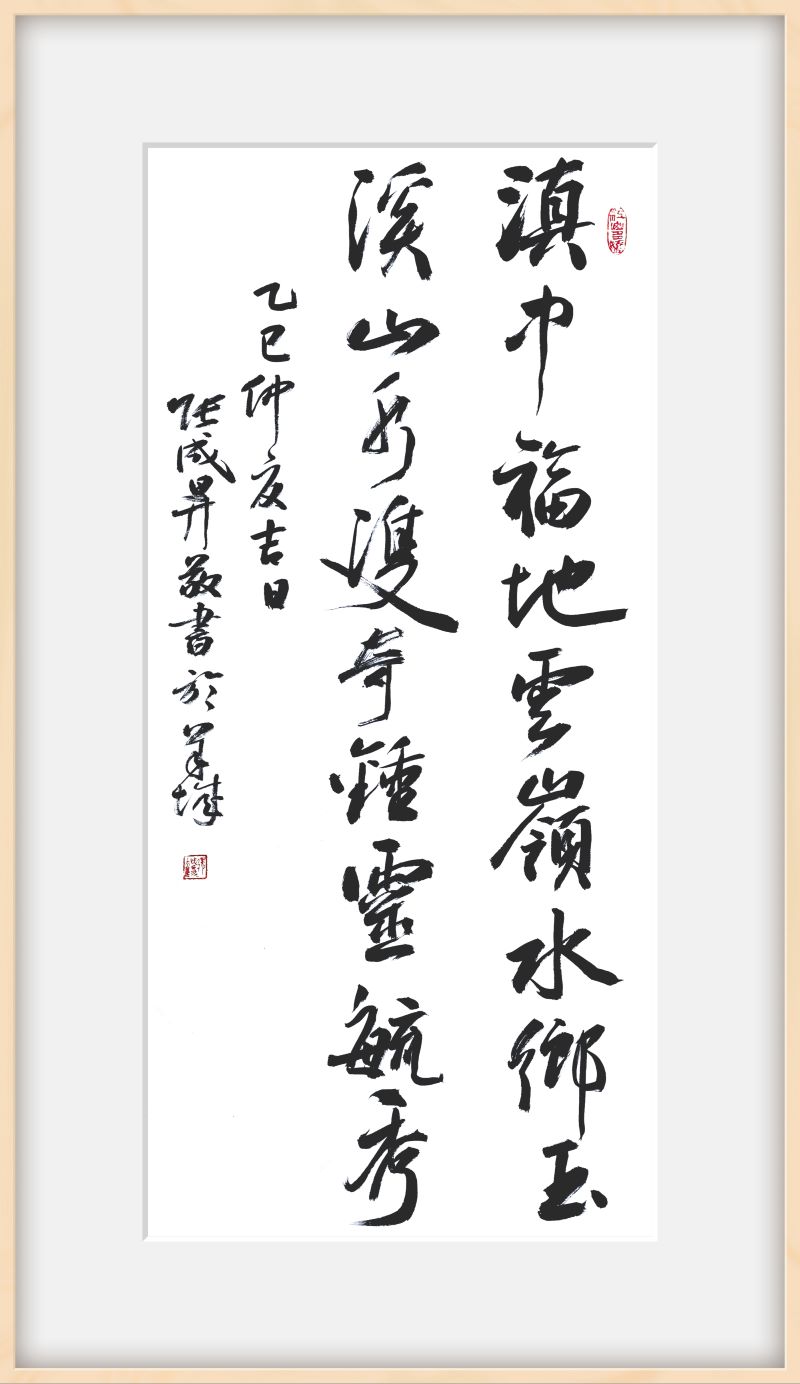 滇中福地雲嶺水鄉玉
溪山水雙奇鍾靈毓秀
乙巳仲夏吉日
張成昇敬書於羊城